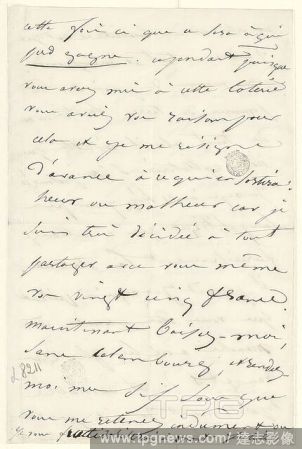 cette fois ci que ce sera à qui
perd gagne. cependant puisque
vous avez mis à cette loterie
vous aviez vos raisons pour
cela et je me résigne
d'avance à ce qui en sortira:
heur ou malheur car je
suis très décidée à tout
partager avec vous même
vos vingt cinq francs.
maintenant baisez-moi,
sans calembourg, et rendez
moi mes six sous que
vous me retenez indument
L 8211
TPG
www.tpgnews.com/達志影像